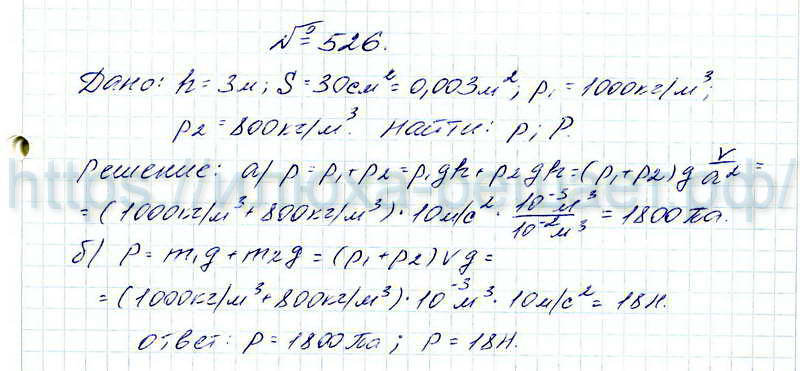 № 526.
Дано: h = 3м; S = 30см² = 0,003м²; ρ₁ = 1000кг/м³;
ρ2 = 800кг/м³. Найти: p; P.
Решение: а) p = p₁ + p₂ = ρ₁gh + ρ2gh = (ρ₁ + ρ2) g V/a² =
= (1000кг/м³ + 800кг/м³) · 10м/с² · 10⁻³м³/10⁻²м³ = 1800Па.
б) P = m₁g + m2g = (ρ₁ + ρ2) Vg =
= (1000кг/м³ + 800кг/м³) · 10⁻³м³ · 10м/с² = 18Н.
ответ: p = 1800Па; P = 18Н.